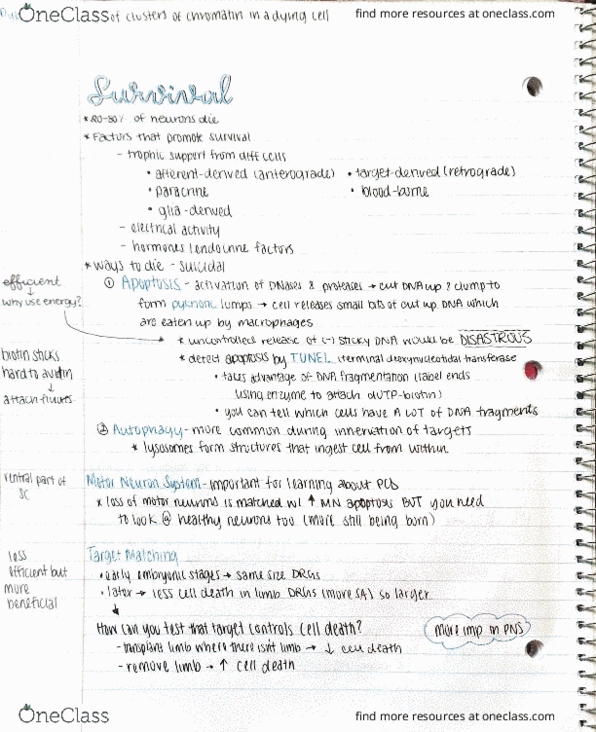 OneClass
of clusters of chromatin in a dying cell
find more resources at oneclass.com
Survival
* 20-80% of neurons die
* Factors that promote survival
- trophic support from diff cells
• afferent-derived (anterograde) • target-derived (retrograde)
• paracrine • blood-borne
• glia-derived
- electrical activity
- hormones/endocrine factors
* Ways to die - suicidal
① Apoptosis - activation of DNases & proteases → cut DNA up & clump to
form pyknotic lumps → cell releases small bits of cut up DNA which
are eaten up by macrophages
efficient
↓
why use energy?
* uncontrolled release of (-) sticky DNA would be DISASTROUS
* detect apoptosis by TUNEL (terminal deoxynucleotidal transferase
• takes advantage of DNA fragmentation (label ends
using enzyme to attach dUTP-biotin)
• you can tell which cells have A LOT of DNA fragments
biotin sticks
hard to avidin
↓
attach fluores
② Autophagy - more common during innervation of targets
* lysosomes form structures that ingest cell from within
ventral part of
SC
Motor Neuron System - important for learning about PCD
* loss of motor neurons is matched w/ ↑ MN apoptosis BUT you need
to look @ healthy neurons too (more still being born)
less
efficient but
more
beneficial
Target Matching
• early embryonic stages → same size DRGs
• later → less cell death in limb DRGs (more SA) so larger
↓
How can you test that target controls cell death?
more imp in PNS
- transplant limb where there isn't limb → ↓ cell death
- remove limb → ↑ cell death
OneClass
find more resources at oneclass.com